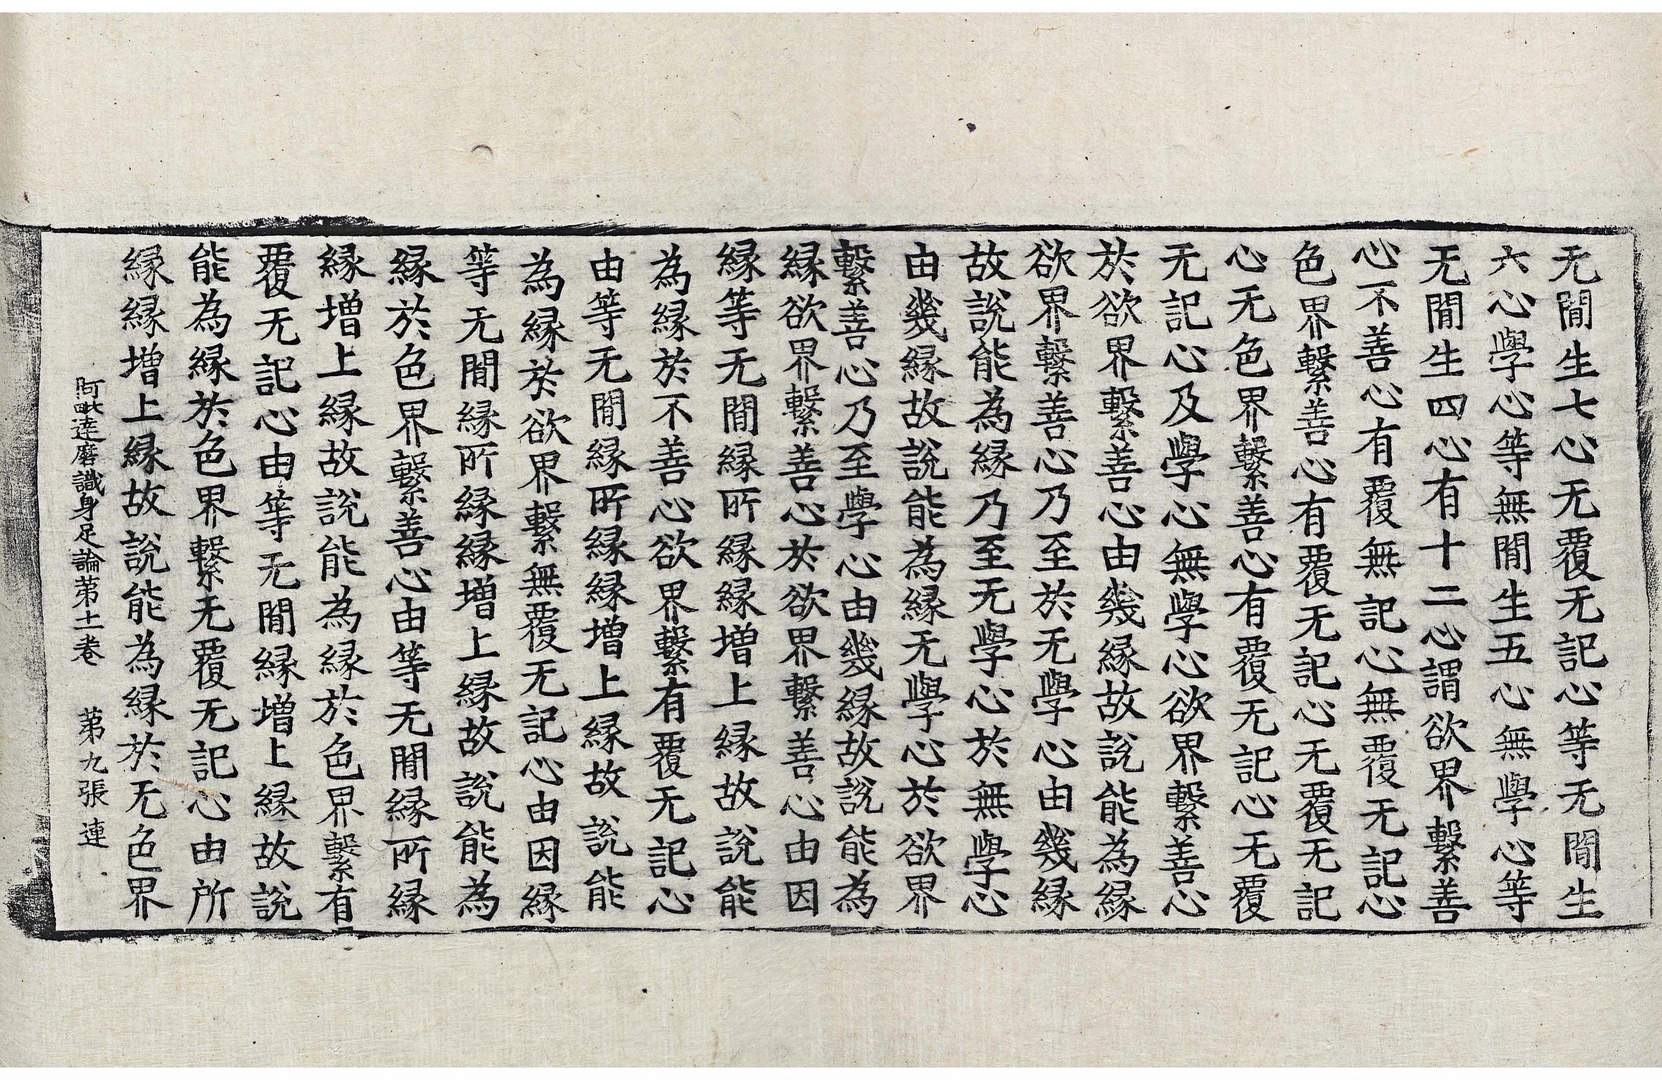 无閒生七心无覆无記心等无閒生
六心學心等無閒生五心無學心等
无閒生四心有十二心謂欲界繫善
心不善心有覆無記心無覆无記心
色界繫善心有覆无記心无覆无記
心无色界繫善心有覆无記心无覆
无記心及學心無學心欲界繫善心
於欲界繫善心由幾緣故說能為緣
欲界繫善心乃至於无學心由幾緣
故說能為緣乃至无學心於無學心
由幾緣故說能為緣无學心於欲界
繫善心乃至學心由幾緣故說能為
緣欲界繫善心於欲界繫善心由因
緣等无閒緣所緣緣增上緣故說能
為緣於不善心欲界繫有覆无記心
由等无閒緣所緣緣增上緣故說能
為緣於欲界繫無覆无記心由因緣
等无閒緣所緣緣增上緣故說能為
緣於色界繫善心由等无閒緣所緣
緣增上緣故說能為緣於色界繫有
覆无記心由等无閒緣增上緣故說
能為緣於色界繫无覆无記心由所
緣緣增上緣故說能為緣於无色界
阿毗達磨識身足論第十一卷 第九張 連